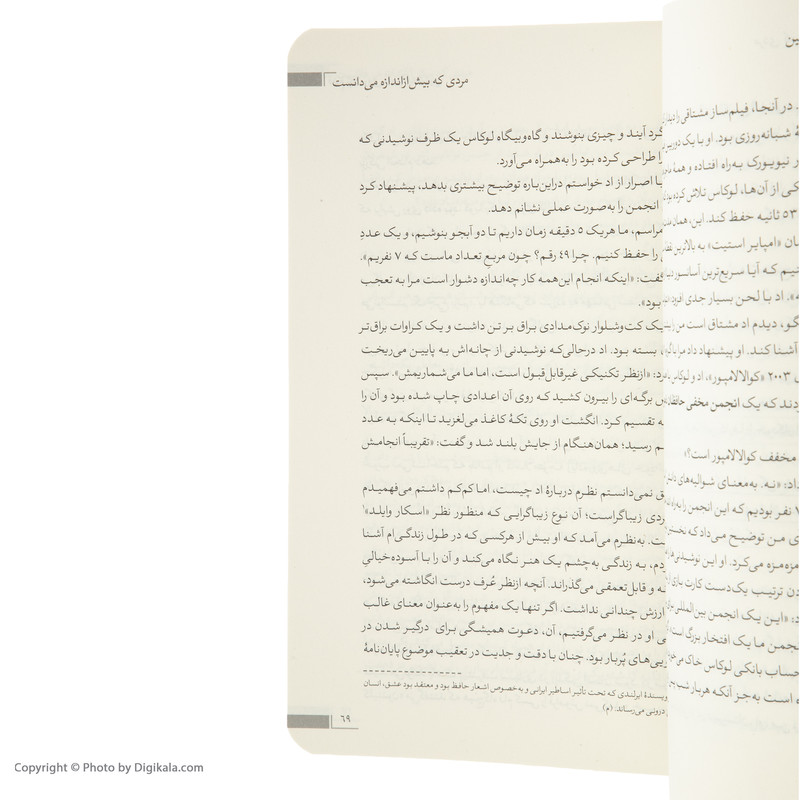 مردی که بیش‌ازاندازه می‌دانست
گرد آیند و چیزی بنوشند و گاه‌وبیگاه لوکاس یک ظرف نوشیدنی که
طراحی کرده بود را به‌همراه می‌آورد.
با اصرار از اد خواستم دراین‌باره توضیح بیشتری بدهد، پیشنهاد کرد
انجمن را به‌صورت عملی نشانم دهد.
مراسم، ما هریک ۵ دقیقه زمان داریم تا دو آبجو بنوشیم، و یک عددِ
را حفظ کنیم. چرا ۴۹ رقم؟ چون مربعِ تعداد ماست که ۷ نفریم».
گفت: «اینکه انجام این‌همه کار چه‌اندازه دشوار است مرا به تعجب
بود».
یک کت‌وشلوار نوک‌مدادی براق بر تن داشت و یک کراوات براق‌تر
بسته بود. اد درحالی‌که نوشیدنی از چانه‌اش به پایین می‌ریخت
«ازنظر تکنیکی غیرقابل‌قبول است، اما ما می‌شماریمش». سپس
برگه‌ای را بیرون کشید که روی آن اعدادی چاپ شده بود و آن را
تقسیم کرد. انگشت او روی تکهٔ کاغذ می‌لغزید تا اینکه به عدد
رسید؛ همان‌هنگام از جایش بلند شد و گفت: «تقریباً انجامش
نمی‌دانستم نظرم دربارهٔ اد چیست، اما کم‌کم داشتم می‌فهمیدم
زیباگراست؛ آن نوع زیباگرایی که منظور نظر «اسکار وایلد»۱
به‌نظرم می‌آمد که او بیش از هرکسی که در طول زندگی‌ام آشنا
به زندگی به‌چشم یک هنر نگاه می‌کند و آن را با آسوده‌خیالیِ
و قابل‌تعمقی می‌گذراند. آنچه ازنظر عُرف درست انگاشته می‌شود،
ارزش چندانی نداشت. اگر تنها یک مفهوم را به‌عنوان معنای غالب
او در نظر می‌گرفتیم، آن، دعوت همیشگی برای درگیر شدن در
پُربار بود. چنان با دقت و جدیت در تعقیب موضوع پایان‌نامهٔ
نویسندهٔ ایرلندی که تحت تأثیر اساطیر ایرانی و به‌خصوص اشعار حافظ بود و معتقد بود عشق، انسان
درونی می‌رساند: (م)
۶۹
در آنجا، فیلم‌ساز مشتاقی را
شبانه‌روزی بود. او با یک
نیویورک به‌راه افتاده و همهٔ
از آن‌ها، لوکاس تلاش کرده
۵۳ ثانیه حفظ کند. این، همان
«امپایر استیت» به بالاترین
که آیا سریع‌ترین آسانسور
اد با لحن بسیار جدی
دیدم اد مشتاق است من
آشنا کند. او پیشنهاد داد مرا
۲۰۰۳ «کوالالامپور»، اد و لوکاس
که یک انجمن مخفی
مخفف کوالالامپور است؟»
«نه. به‌معنای شوالیه‌های
۷ نفر بودیم که این انجمن را
من توضیح می‌داد که
مزه‌مزه می‌کرد. او این
ترتیب یک‌دست کارت بازی
«این یک انجمن بین‌المللی
ما یک افتخار بزرگ است
حساب بانکی لوکاس خاک
است به‌جز آنکه هربار
Copyright © Photo by Digikala.com